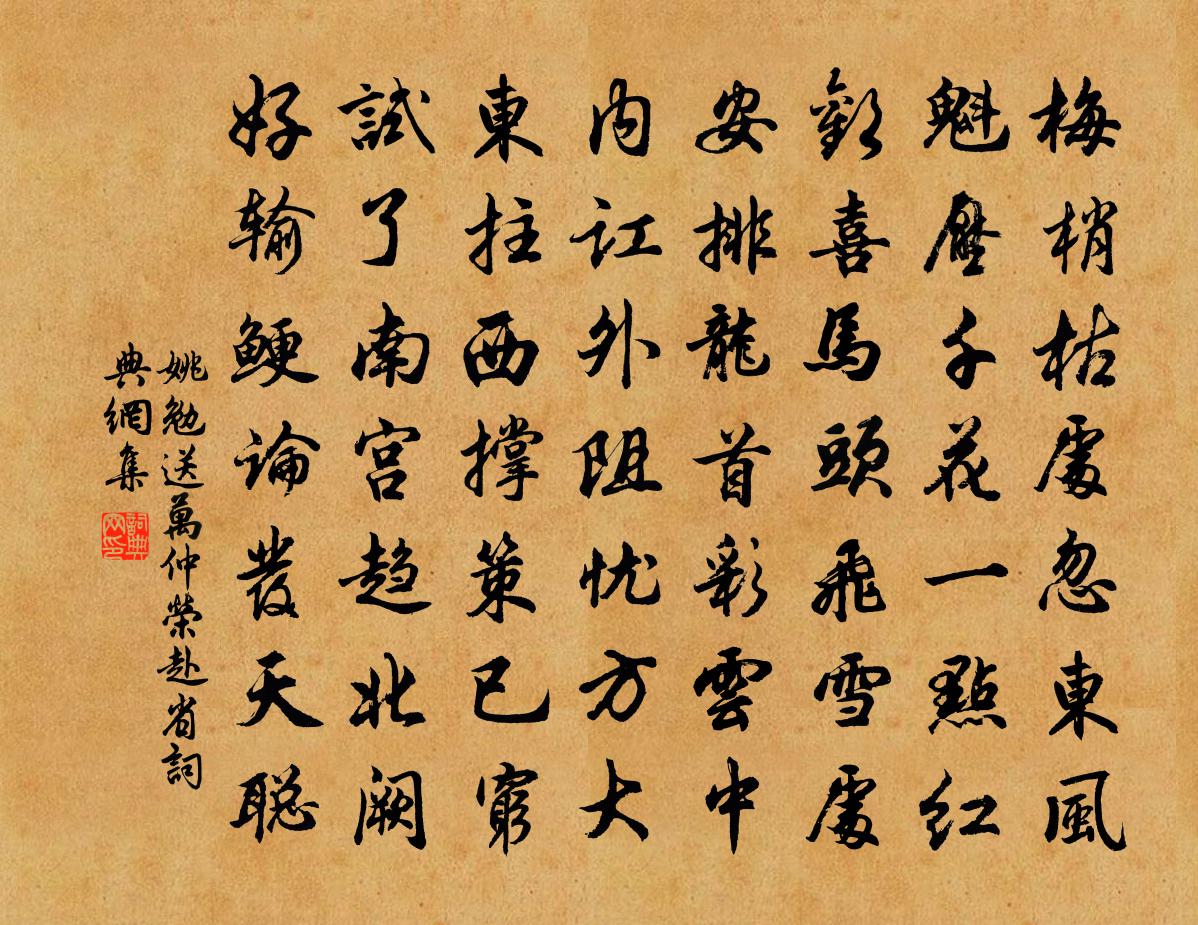 梅梢枯處忽東風
魁壓千花一點紅
歡喜馬頭飛雪處
安排龍首彩雲中
内訌外阻忧方大
東拄西撑策已窮
試了南宫趋北阙
好输鲠論發天聪
姚勉送萬仲榮赴省詞
典網集
詞典
网印